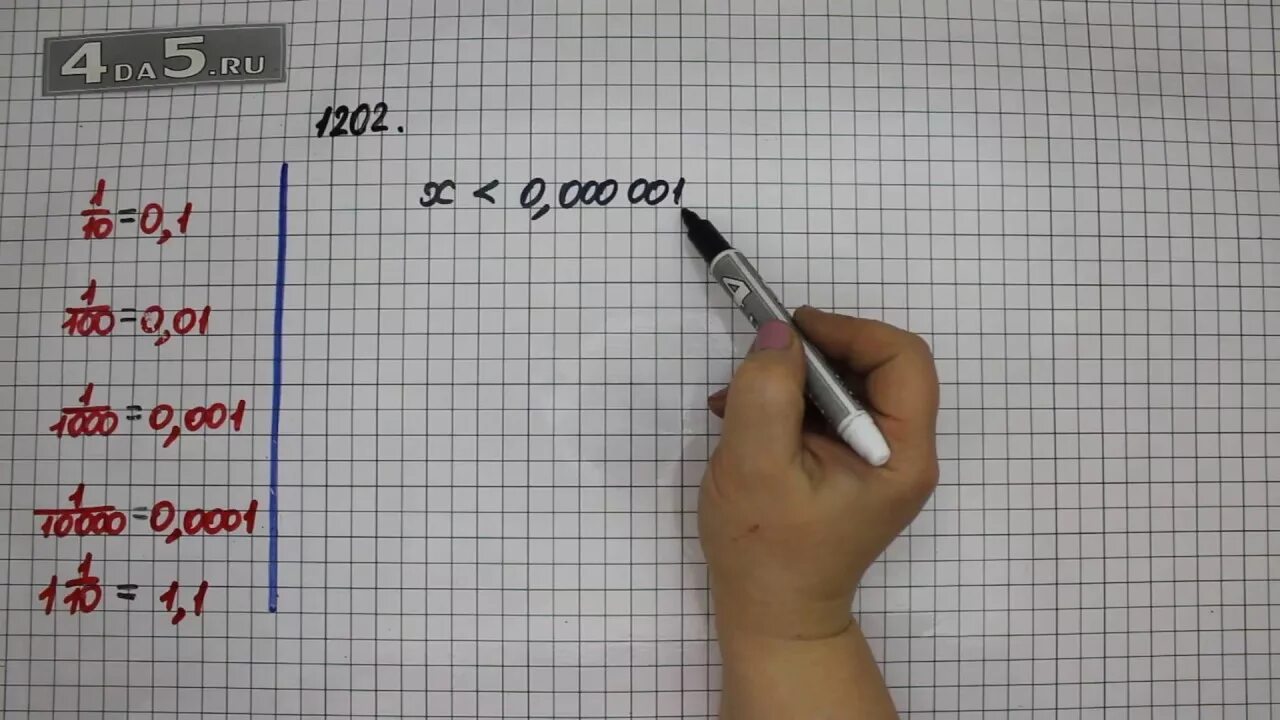 4DA5.RU
1202.
x < 0,000 001
1/10 = 0,1
1/100 = 0,01
1/1000 = 0,001
1/10000 = 0,0001
1 1/10 = 1,1
4